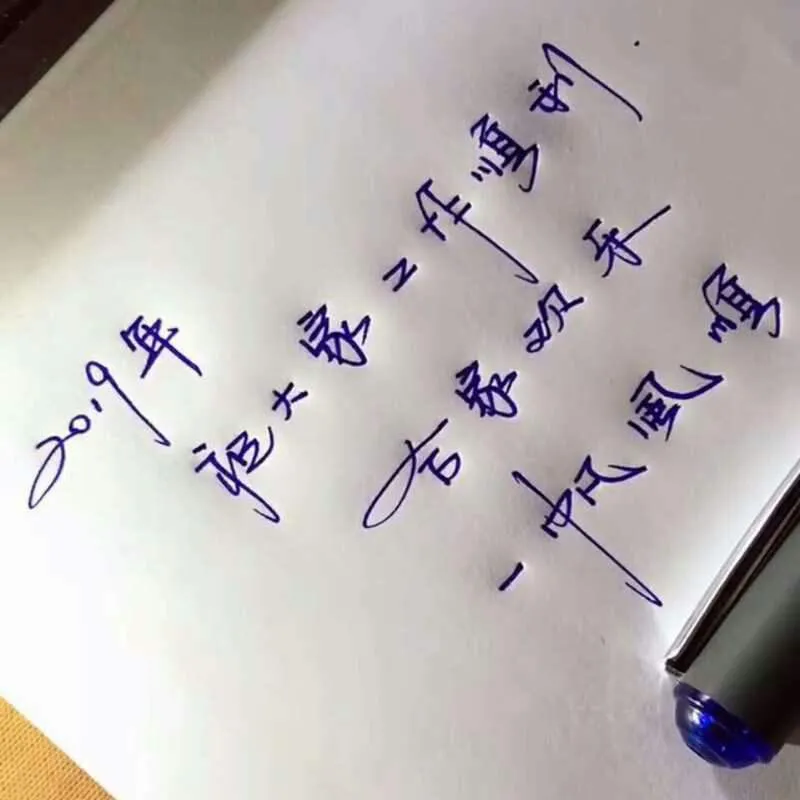 2019年
祝大家工作顺利
合家欢乐
一帆风顺